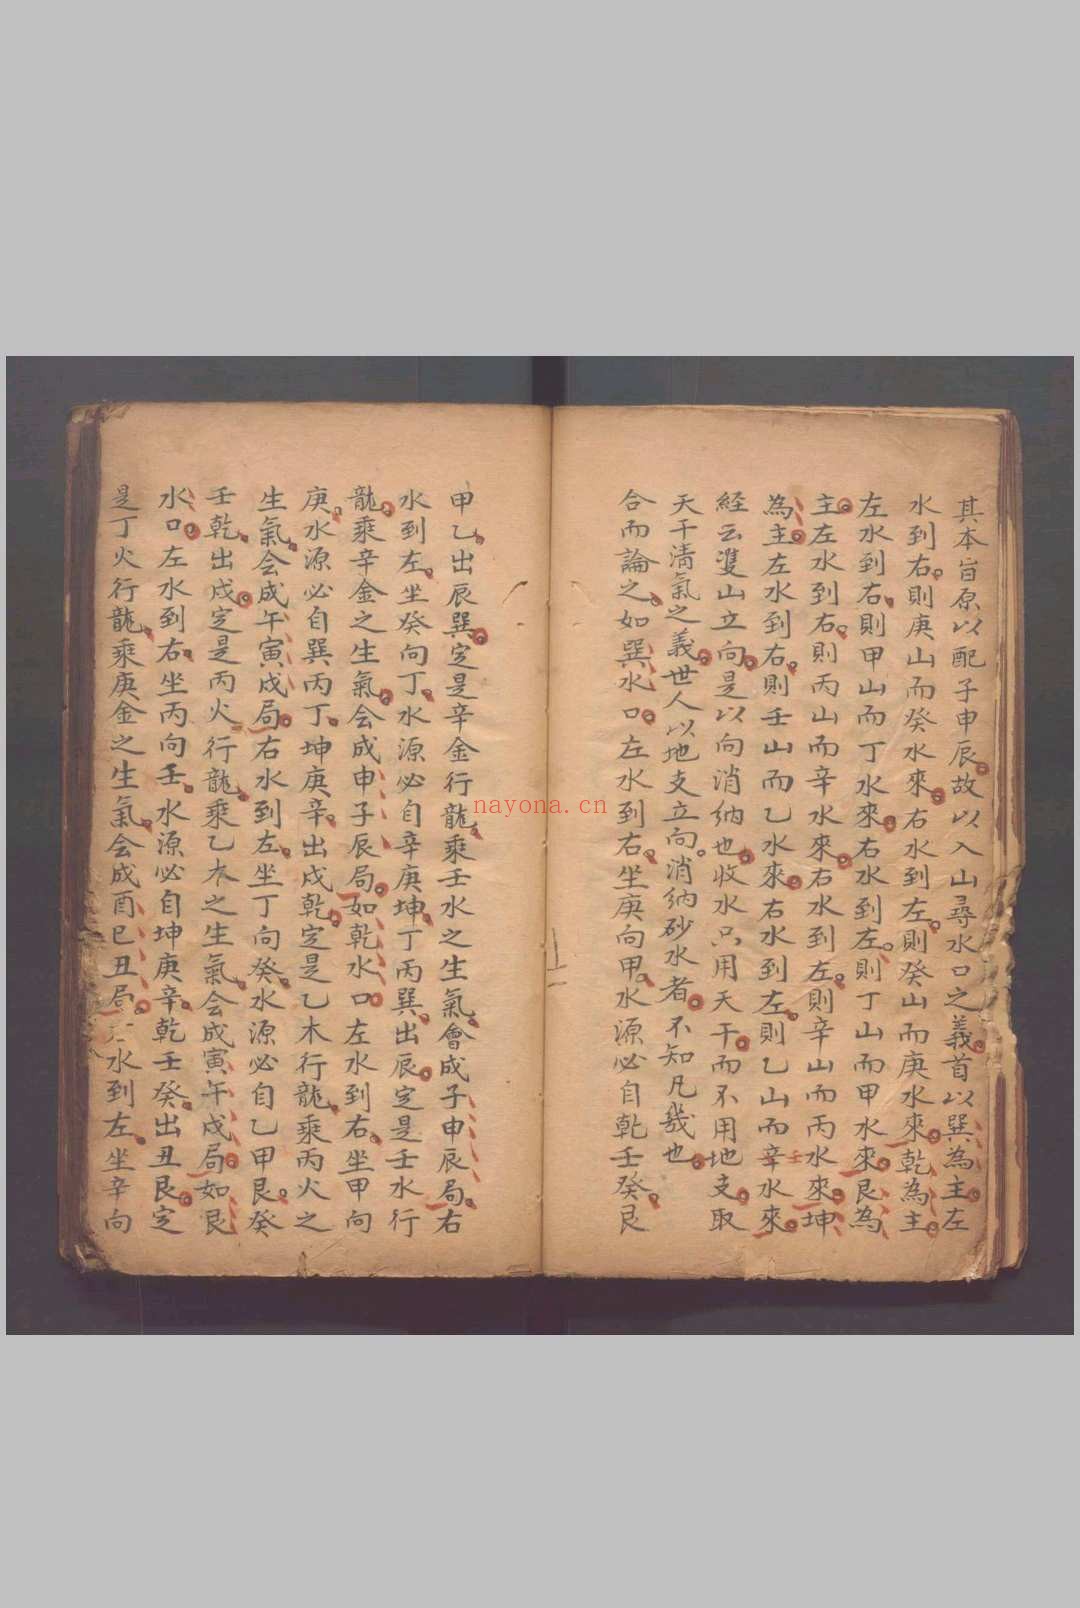 其本旨原以配子申辰故以入山尋水口之義首以巽為主左
水到右則庚山而癸水來右水到左則癸山而庚水來乾為主
左水到右則甲山而丁水來右水到左則丁山而甲水來艮為
主左水到右則丙山而辛水來右水到左則辛山而丙水來坤
為主左水到右則壬山而乙水來右水到左則乙山而辛水來
壬
経云雙山立向是以向消納也收水只用天干而不用地支取
天干清氣之義世人以地支立向消納砂水者不知凡幾也
合而論之如巽水口左水到右坐庚向甲水源必自乹壬癸艮
甲乙出辰巽定是辛金行龍乘壬水之生氣會成子申辰局右
水到左坐癸向丁水源必自辛庚坤丁丙巽出辰定是壬水行
龍乘辛金之生氣会成申子辰局如乾水口左水到右坐甲向
庚水源必自巽丙丁坤庚辛出戌乾定是乙木行龍乘丙火之
生氣会成午寅戌局右水到左坐丁向癸水源必自乙甲艮癸
壬乾出戌定是丙火行龍乘乙木之生氣会成寅午戌局如艮
水口左水到右坐丙向壬水源必自坤庚辛乾壬癸出丑艮定
是丁火行龍乘庚金之生氣会成酉巳丑局水到左坐辛向
nayona.cn